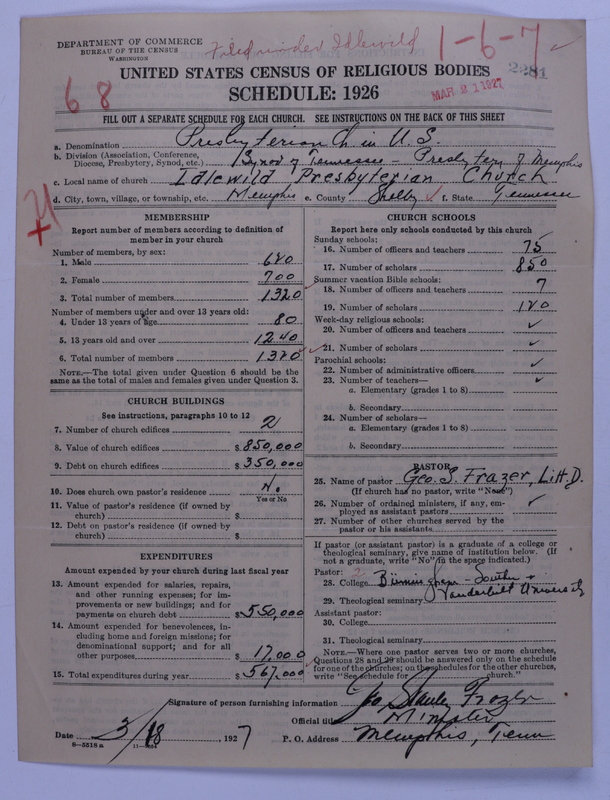 DEPARTMENT OF COMMERCE
BUREAU OF THE CENSUS
WASHINGTON
Filed under Idlewild
1-6-7
2281
MAR 21 1927
68
UNITED STATES CENSUS OF RELIGIOUS BODIES
SCHEDULE: 1926
FILL OUT A SEPARATE SCHEDULE FOR EACH CHURCH. SEE INSTRUCTIONS ON THE BACK OF THIS SHEET
a. Denomination Presbyterian Ch in U.S.
b. Division (Association, Conference, Diocese, Presbytery, Synod, etc.) Synod of Tennessee - Presbytery of Memphis
c. Local name of church Idlewild Presbyterian Church
d. City, town, village, or township, etc. Memphis e. County Shelby f. State Tennessee
MEMBERSHIP
Report number of members according to definition of
member in your church
Number of members, by sex:
1. Male 620
2. Female 700
3. Total number of members 1320
Number of members under and over 13 years old:
4. Under 13 years of age 80
5. 13 years old and over 1240
6. Total number of members 1320
NOTE.—The total given under Question 6 should be
same as the total of males and females given under Question 3.
CHURCH BUILDINGS
See instructions, paragraphs 10 to 12
7. Number of church edifices 2
8. Value of church edifices $ 850,000
9. Debt on church edifices $ 350,000
10. Does church own pastor's residence No
Yes or No
11. Value of pastor's residence (if owned by
church) $
12. Debt on pastor's residence (if owned by
church) $
EXPENDITURES
Amount expended by your church during last fiscal year
13. Amount expended for salaries, repairs,
and other running expenses; for im-
provements or new buildings; and for
payments on church debt $ 550,000
14. Amount expended for benevolences, in-
cluding home and foreign missions; for
denominational support; and for all
other purposes $ 17,000
15. Total expenditures during year $ 567,000
CHURCH SCHOOLS
Report here only schools conducted by this church
Sunday schools:
16. Number of officers and teachers 75
17. Number of scholars 850
Summer vacation Bible schools:
18. Number of officers and teachers 7
19. Number of scholars 120
Week-day religious schools:
20. Number of officers and teachers ✓
21. Number of scholars ✓
Parochial schools:
22. Number of administrative officers ✓
23. Number of teachers— ✓
a. Elementary (grades 1 to 8)
b. Secondary
24. Number of scholars—
a. Elementary (grades 1 to 8)
b. Secondary
PASTOR
25. Name of pastor Geo. S. Frazer, Litt.D.
(If church has no pastor, write "None")
26. Number of ordained ministers, if any, em-
ployed as assistant pastors ✓
27. Number of other churches served by the
pastor or his assistants
If pastor (or assistant pastor) is a graduate of a college or
theological seminary, give name of institution below. (If
not a graduate, write "No" in the space indicated.)
Pastor:
28. College Birmingham - Southern +
29. Theological seminary Vanderbilt University
Assistant pastor:
30. College
31. Theological seminary
NOTE.—Where one pastor serves two or more churches,
Questions 28 and 29 should be answered only on the schedule
for one of the churches; on the schedules for the other churches,
write "See schedule for church."
Signature of person furnishing information Geo Stanley Frazer
Official title Minister
Date 3/18, 1927 P. O. Address Memphis, Tenn
8-5518 a